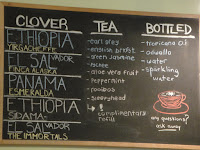 CLOVER
ETHIOPIA
YIRGACHEFFE
EL SALVADOR
FINCA ALASKA
PANAMA
ESMERALDA
ETHIOPIA
SIDAMA
EL SALVADOR
THE IMMORTALS
TEA
-earl grey
-english brkfst
-green jasmine
-aloe vera fruit
-peppermint
-rooibos
complimentary
refill
BOTTLED
-tropicana OJ
-odwalla
-water
-sparkling
water
any questions?
ask away